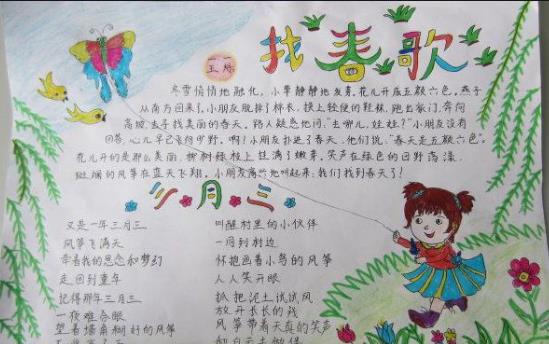 找春歌
冬雪悄悄地融化,小草静静地发青。花儿开放五颜六色。燕子
从南方回来了,小朋友脱掉了棉衣。换上轻便的鞋袜,跑出家门,奔向
高坡,去寻找美丽的春天。路人疑惑地问:"去哪儿,娃娃?"小朋友没有
回答,心儿早已飞向旷野。啊!小朋友扑进了春天,他们说:"春天是五颜六色"。
花儿开的是那么美丽。柳树绿枝上挂满了嫩芽,笑声在绿色的田野荡漾,
斑斓的风筝在蓝天下翔。小朋友高兴地叫起来:我们找到春天了!
三·月·三
又是一年三月三
风筝飞满天
牵着我的思念和梦幻
走回到童年
记得那年三月三
一夜难合眼
望着墙角糊好的风筝
叫醒村里的小伙伴
一同到村边
怀抱画着小鸟的风筝
人人笑开眼
抓把泥土试试风
放开长长的线
风筝带着天真的笑声
和白云去做伴